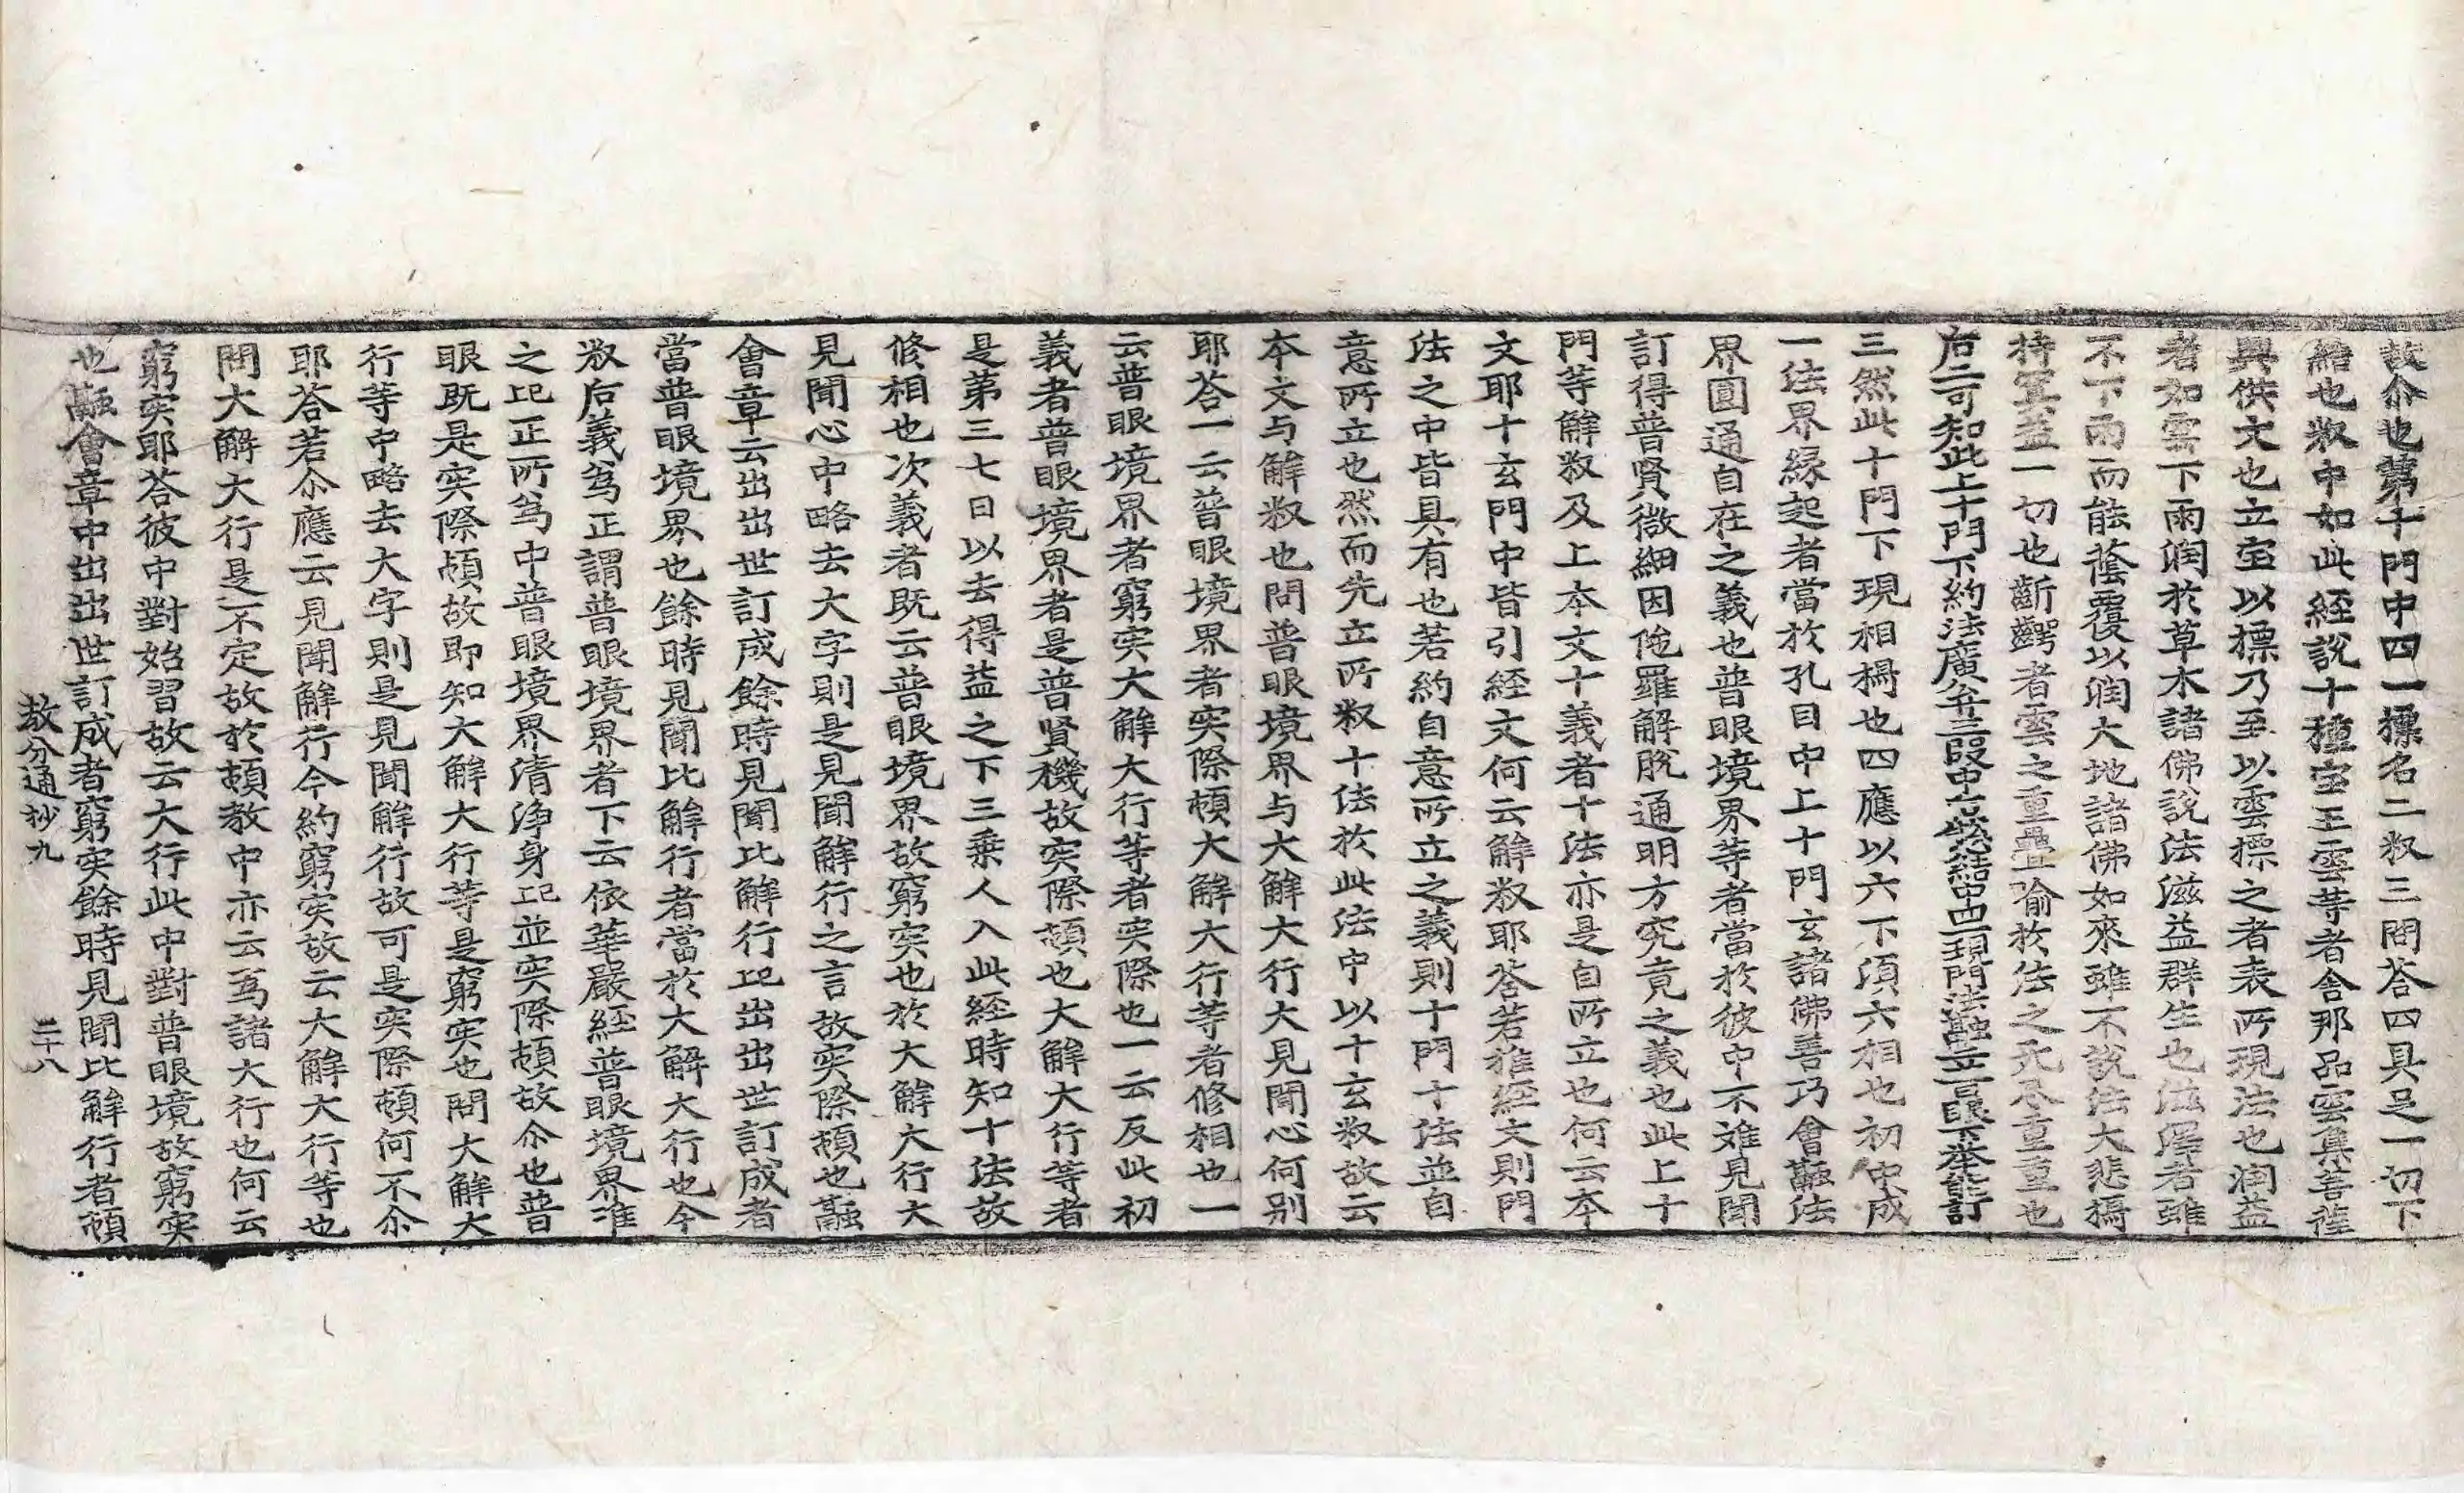 故尒也第十門中四一摽名二㪽三問答四具足一切下
結也㪽中如此経說十種宝王雲䓁者舎那品雲集菩薩
興供文也立宝以摽乃至以雲摽之者表所現法也润益
者如雲下雨润於草木諸佛說法滋益群生也滋澤者雖
不下雨而能蔭覆以润大地諸佛如來雖不說法大悲攝
持冥益一切也齗齶者雲之重疊喻於法之无尽重重也
后二可知此上十門下約法廣弁三段中結中四一現門法融立言眼下举能訂
三然此十門下現相攝也四應以六下湏六相也初中成
一法界縁起者當於孔目中上十門玄諸佛善巧會融法
界圓通自在之義也普眼境界等者當於彼中不難見聞
訂得普賢微細因陁羅解脫通明方究竟之義也此上十
門等觧㪽及上夲文十義者十法亦是自所立也何云夲
文耶十玄門中皆引経文何云觧㪽耶荅若推経文則門
法之中皆具有也若約自意所立之義則十門十法並自
意所立也然而先立所㪽十法於此法中以十玄㪽故云
夲文与解㪽也問普眼境界与大解大行大見聞心何别
耶荅一云普眼境界者実際頓大解大行等者修相也一
云普眼境界者窮実大解大行等者実際也一云反此初
義者普眼境界者是普賢機故実際頓也大觧大行等者
是第三七日以去得益之下三乗人入此経時知十法故
修相也次義者既云普眼境界故窮実也於大觧大行大
見聞心中略去大字則是見聞觧行之言故実際頓也融
會章云出出世訂成餘時見聞比觧行䛊出出世訂成者
當普眼境界也餘時見聞比觧行者當於大解大行也今
㪽后義為正謂普眼境界者下云依華嚴経普眼境界准
之䛊正所為中普眼境界清浄身䛊並実際頓故尒也普
眼既是実際頓故即知大觧大行等是窮実也問大觧大
行等中略去大字則是見聞觧行故可是実際頓何不尒
耶荅若尒應云見聞觧行今約窮実故云大觧大行等也
問大解大行是不定故於頓教中亦云為諸大行也何云
窮実耶荅彼中對始習故云大行此中對普眼境故窮実
也融會章中出出世訂成者窮実餘時見聞比觧行者頓
教分通抄九 二十八